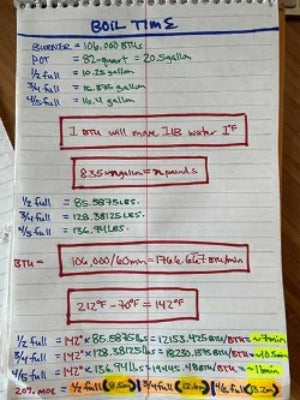 BOIL TIME
BURNER = 106,000 BTUs
POT = 82-quart = 20.5 gallon
1/2 full = 10.25 gallon
3/4 full = 15.375 gallon
4/5 full = 16.4 gallon
1 BTU will move 1LB water 1°F
8.35 × gallon = pounds
1/2 full = 85.5875 LBS.
3/4 full = 128.38125 LBS.
4/5 full = 136.94 LBS.
BTU = 106,000/60min = 1766.667 BTU/min
212°F - 70°F = 142°F
1/2 full = 142° × 85.5875 lbs = 12153.425 BTU/BTU = ~7min
3/4 full = 142° × 128.38125 lbs = 18230.1375 BTU/BTU = ~10.5min
4/5 full = 142° × 136.94 lbs = 19445.48 BTU/BTU = ~11min
20% MOE = 1/2 full (8.5m) | 3/4 full (12.6m) | 4/5 full (13.2m)